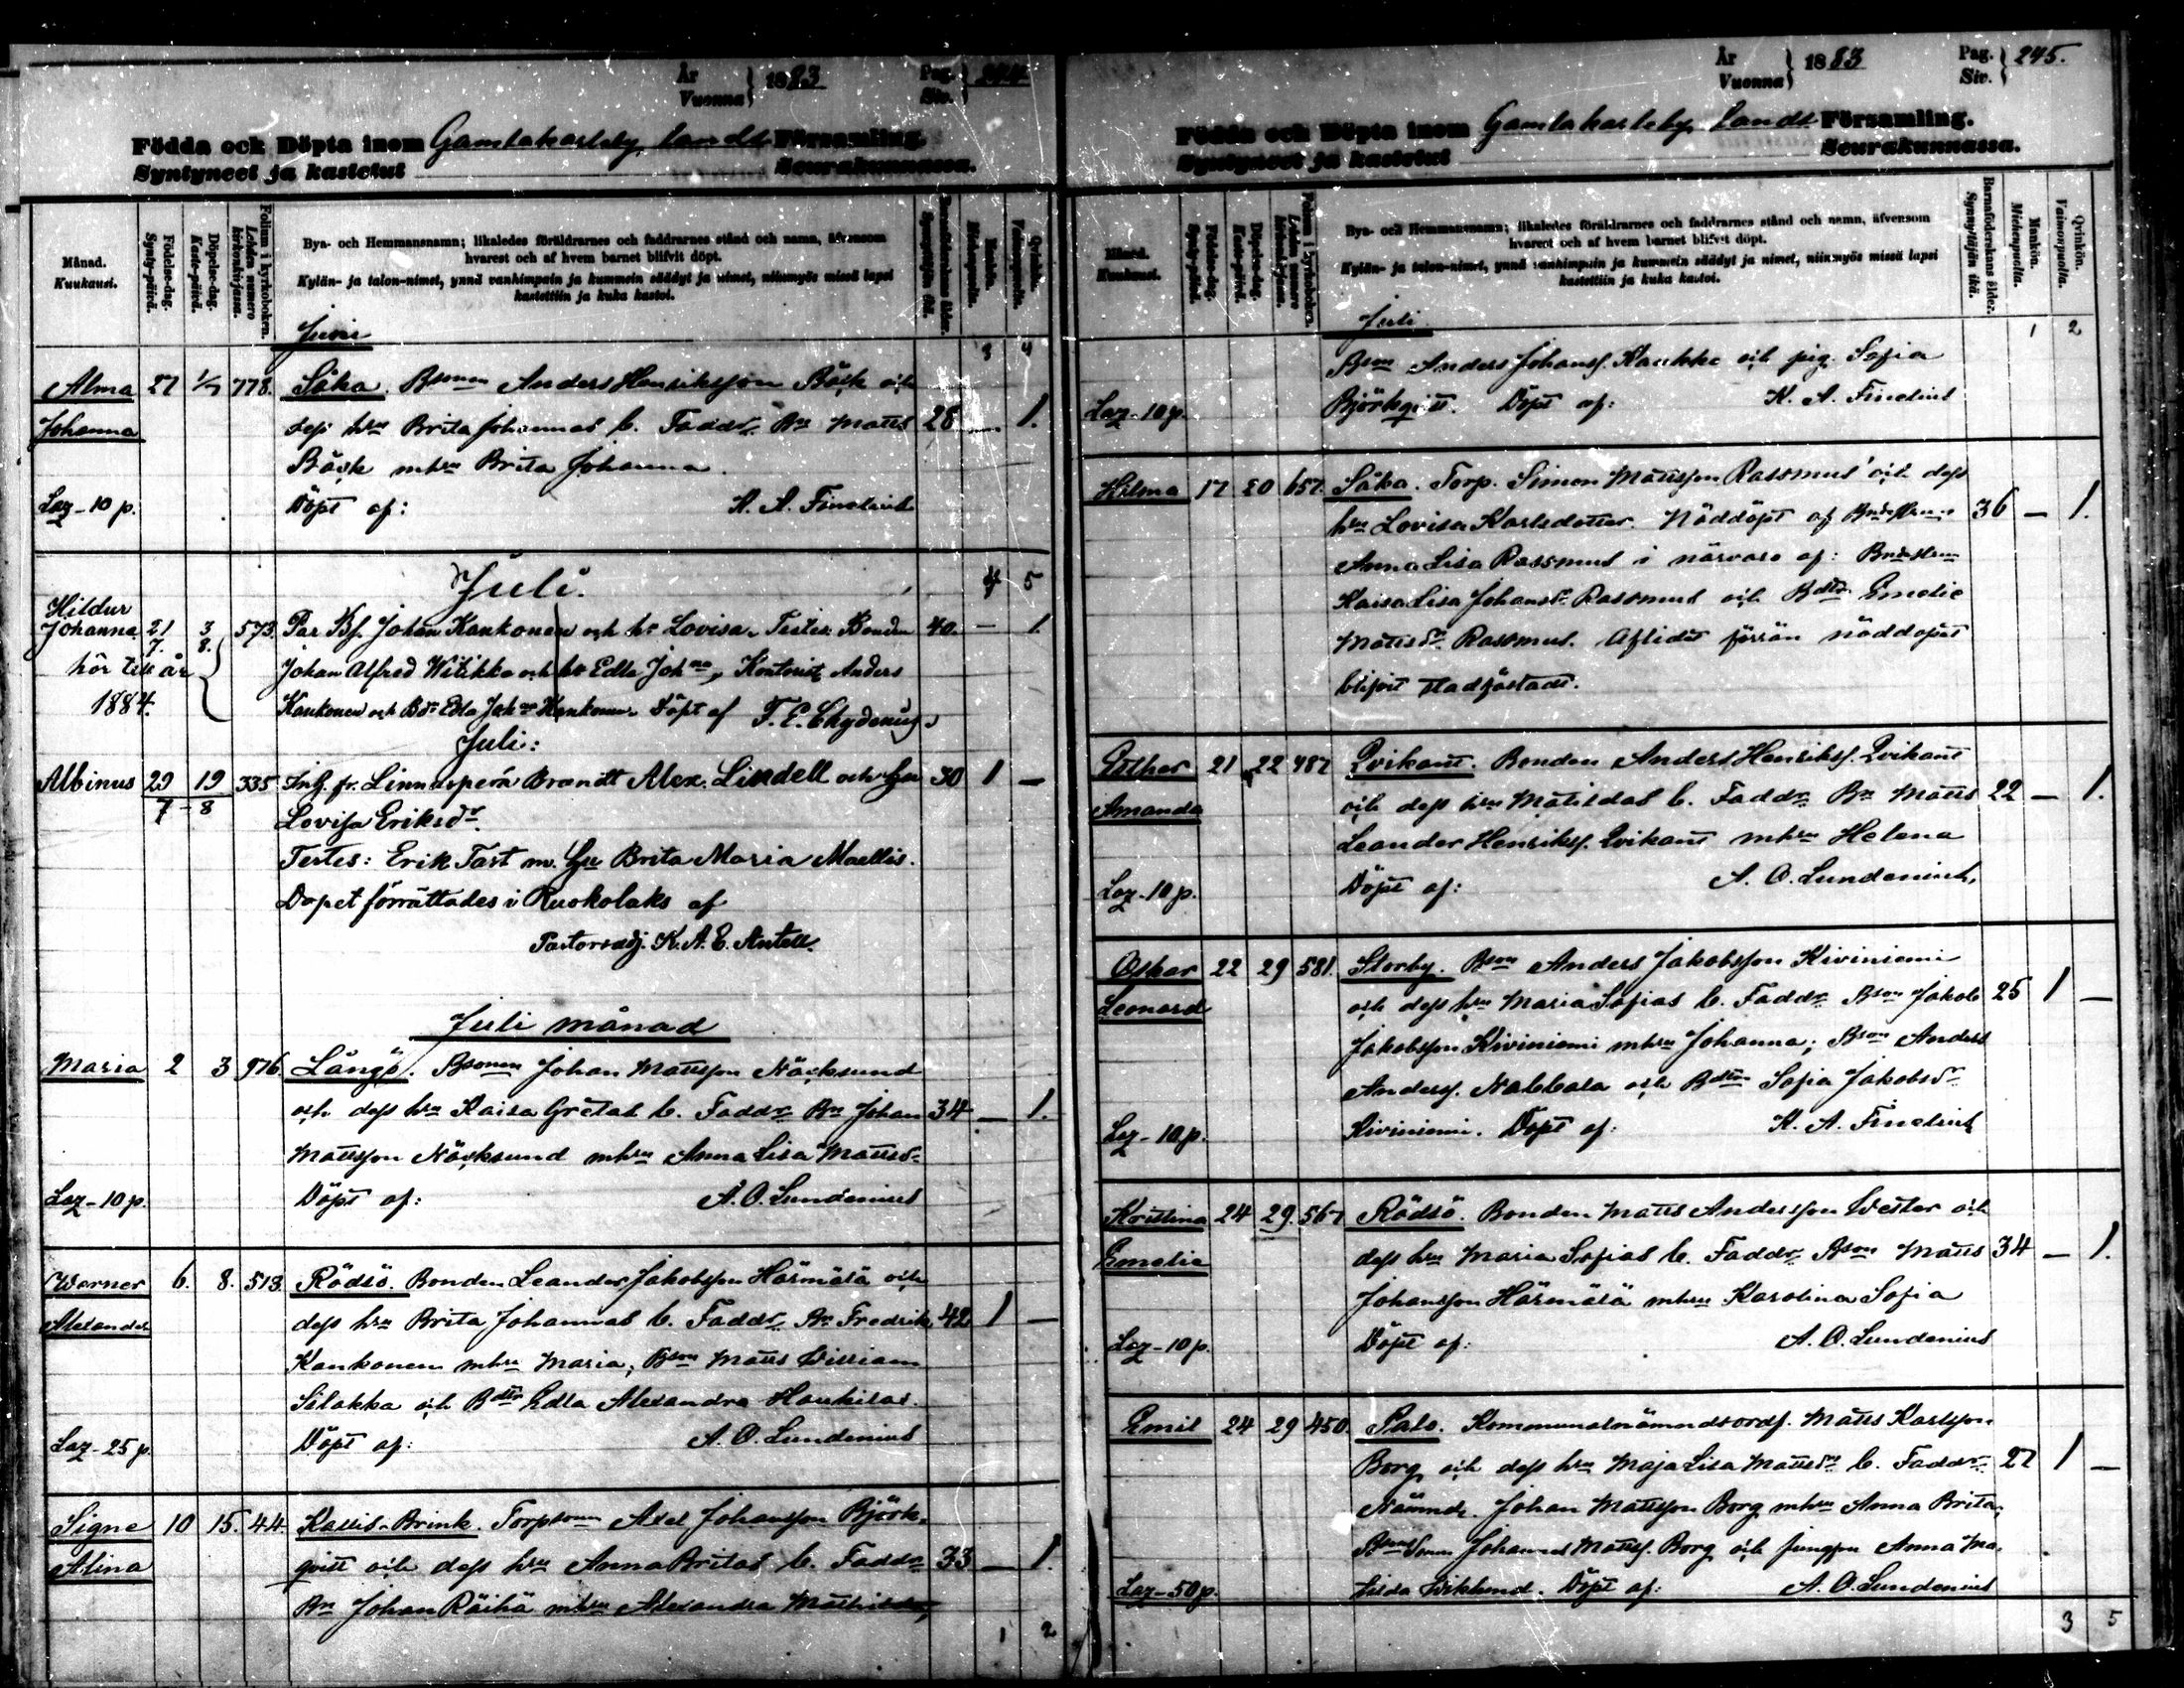 År
Vuonna } 1883 Pag.
Siv. } 244
Födda och Döpta inom Gamlakarleby landt Församling.
Syntyneet ja kastetut Seurakunnassa.
Månad.
Kuukausi.
Födelse-dag.
Synty-päivä.
Döpelse-dag.
Kaste-päivä.
Folium i kyrkoboken.
Lehden numero kirkonkirjassa.
Bya- och Hemmansnamn; likaledes föräldrarnes och faddrarnes stånd och namn, äfvensom
hvarest och af hvem barnet blifvit döpt.
Kylän- ja talon-nimet, ynnä vanhimpain ja kummein säädyt ja nimet, niinmyös missä lapsi
kastettiin ja kuka kastoi.
Barnaföderskans ålder.
Synnyttäjän ikä.
Mankön.
Miehenpuolta.
Qvinkön.
Vaimonpuolta.
Juni
3 4
Alma 27 1/7 778. Såka. Bsonen Anders Henriksson Bäck och
Johanna dess hru Brita Johannas b. Faddr Bn Matts 28 — 1.
Bäck mhru Brita Johanna.
Laz - 10 p. Döpt af: K. A. Finelius
Juli. 4 5
Hildur
Johanna 21/7. 3/8. 573. Par Bf. Johan Kankonen och h. Lovisa. Testes Bonden 40. — 1.
hör till år Johan Alfred Witikka och hu Edla Johna, Kontorist Anders
1884. Kankonen och Bdr Edla Johna Kankonen Döpt af F. E. Chydenius
Juli:
Albinus 29/7 - 19/8 335 Inh. fr. Linndoperå Brandt Alex. Lindell och hu 30 1 —
Lovisa Eriksdr.
Testes: Erik Tast m. hu Brita Maria Maellis.
Dopet förrättades i Ruokolaks af
Pastorsadj. K. A. E. Antell.
Juli månad
Maria 2 3 976 Långö. Bsonen Johan Mattsson Näcksund
och dess hru Kaisa Gretas b. Faddr Bn Johan 34 — 1.
Mattsson Näcksund mhru Anna Lisa Mattsdr
Laz - 10 p. Döpt af: A. O. Lundenius
Werner 6. 8. 513. Rödsö. Bonden Leander Jakobsson Härmälä och
Alexander dess hru Brita Johannas b. Faddr Bn Fredrik 42 1 —
Kankonen mhru Maria; Bson Matts William
Silakka och Bdtr Edla Alexandra Haukilas.
Laz - 25 p. Döpt af: A. O. Lundenius
Signe 10 15. 44 Kallis-Brink. Torpson Axel Johansson Björk-
Alina qvist och dess hru Anna Britas b. Faddr 33 — 1.
Bn Johan Räihä mhru Alexandra Mathilda,
1 2
År
Vuonna } 1883 Pag.
Siv. } 245.
Födda och Döpta inom Gamlakarleby landt Församling.
Syntyneet ja kastetut Seurakunnassa.
Månad.
Kuukausi.
Födelse-dag.
Synty-päivä.
Döpelse-dag.
Kaste-päivä.
Folium i kyrkoboken.
Lehden numero kirkonkirjassa.
Bya- och Hemmansnamn; likaledes föräldrarnes och faddrarnes stånd och namn, äfvensom
hvarest och af hvem barnet blifvit döpt.
Kylän- ja talon-nimet, ynnä vanhimpain ja kummein säädyt ja nimet, niinmyös missä lapsi
kastettiin ja kuka kastoi.
Barnaföderskans ålder.
Synnyttäjän ikä.
Mankön.
Miehenpuolta.
Qvinkön.
Vaimonpuolta.
Juli
1 2
Bson Anders Johanss. Kaukko och pig. Sofia
Laz - 10 p. Björkqvist. Döpt af: K. A. Finelius
Hilma 17 20 657. Såka. Torp. Simon Mattsson Rassmus' och dess
hru Lovisa Karlsdotter. Nöddöpt af 36 — 1.
Anna Lisa Rassmus i närvaro af:
Kaisa Lisa Johansdr Rassmus och Bdtr Emelie
Mattsdr Rassmus. Aflidit förrän nöddopet
blifvit stadfästadt.
Esther 21 22 487 Qvikant. Bonden Anders Henrikss. Qvikant
Amanda och dess hru Matildas b. Faddr Bn Matts 22 — 1.
Leander Henrikss. Qvikant mhru Helena
Laz - 10 p. Döpt af: A. O. Lundenius
Oskar 22 29 581. Storby. Bson Anders Jakobsson Kiviniemi
Leonard och dess hru Maria Sofias b. Faddr Bson Jakob 25 1 —
Jakobsson Kiviniemi mhru Johanna; Bson Anders
Anderss. Nabbala och Bdtr Sofia Jakobsdr
Laz - 10 p. Kiviniemi. Döpt af: K. A. Finelius
Kristina 24 29. 567 Rödsö. Bonden Matts Andersson Wester och
Emelie dess hru Maria Sofias b. Faddr Bson Matts 34 — 1.
Johansson Härmälä mhru Karolina Sofia
Laz - 10 p. Döpt af: A. O. Lundenius
Emil 24 29 450. Palo. Kommunalnämndsordf. Matts Karlsson
Borg och dess hru Maja Lisa Mattsdr b. Faddr 27 1 —
Nämndn. Johan Mattsson Borg mhru Anna Brita,
Johannes Mattss. Borg och jungfru Anna Ma-
Laz - 50 p. tilda Wiklund. Döpt af: A. O. Lundenius
3 5